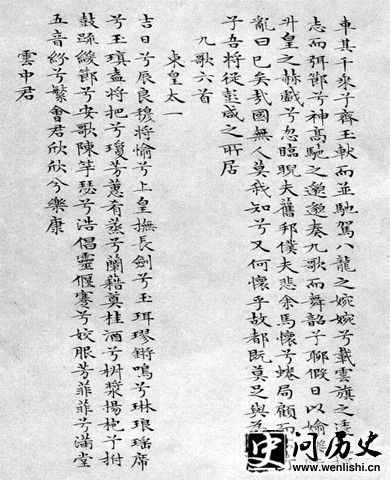 車其千乘兮齊玉軑而並馳駕八龍之婉婉兮載雲旗之逶
志而弭節兮神高馳之邈邈奏九歌而舞韶兮聊假日以媮
升皇之赫戲兮忽臨睨夫舊邦僕夫悲余馬懷兮蜷局顧而
亂曰已矣哉國無人莫我知兮又何懷乎故都既莫足與為
子吾將從彭咸之所居
九歌六首
東皇太一
吉日兮辰良穆將愉兮上皇撫長劍兮玉珥璆鏘鳴兮琳琅瑤席
兮玉瑱盍將把兮瓊芳蕙肴蒸兮蘭藉奠桂酒兮椒漿揚枹兮拊
鼓疏緩節兮安歌陳竽瑟兮浩倡靈偃蹇兮姣服芳菲菲兮滿堂
五音紛兮繁會君欣欣兮樂康
雲中君
史 问历史
www.wenlishi.cn